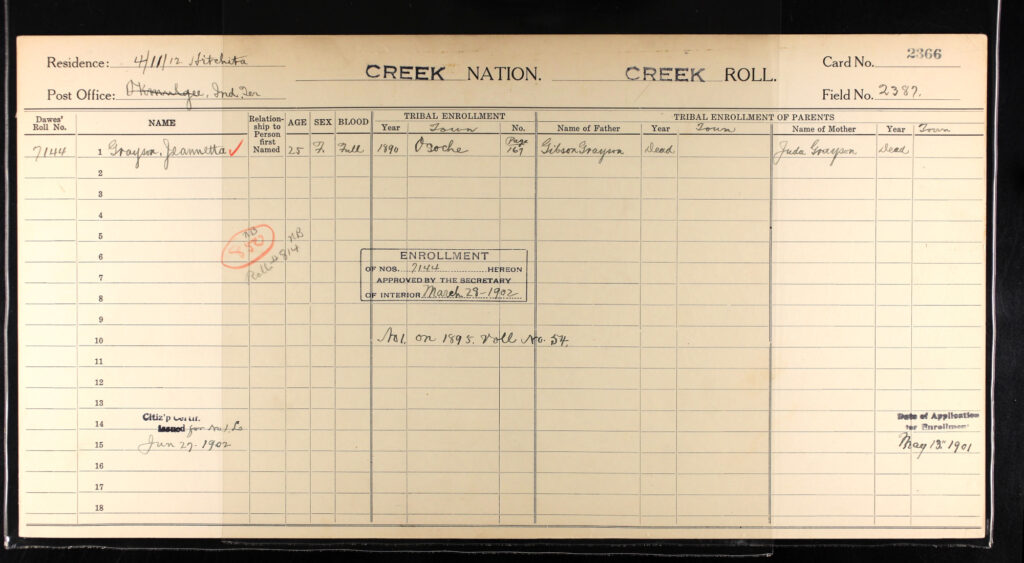 Residence: 4/11/12 Hitchita
CREEK NATION. CREEK ROLL. Card No. 2366
Post Office: Okmulgee, Ind. Ter Field No. 2387.
Dawes' Roll No. NAME Relationship to Person first Named AGE SEX BLOOD TRIBAL ENROLLMENT TRIBAL ENROLLMENT OF PARENTS
Year Town No. Name of Father Year Town Name of Mother Year Town
7144 1 Grayson, Jeannetta ✓ 25 F. Full 1890 Osoche Page 167 Gibson Grayson Dead Juda Grayson Dead
2
3
4
5
NB
850
Roll # 814 NB
6 ENROLLMENT
OF NOS. 7144 HEREON
7 APPROVED BY THE SECRETARY
8 OF INTERIOR March 28-1902
9
10 No 1. on 1895. Roll No. 54.
11
12
13
Citiz'p Certif. Date of Application
14 Issued for No 1 for Enrollment
15 Jun 27-1902 May 13" 1901
16
17
18